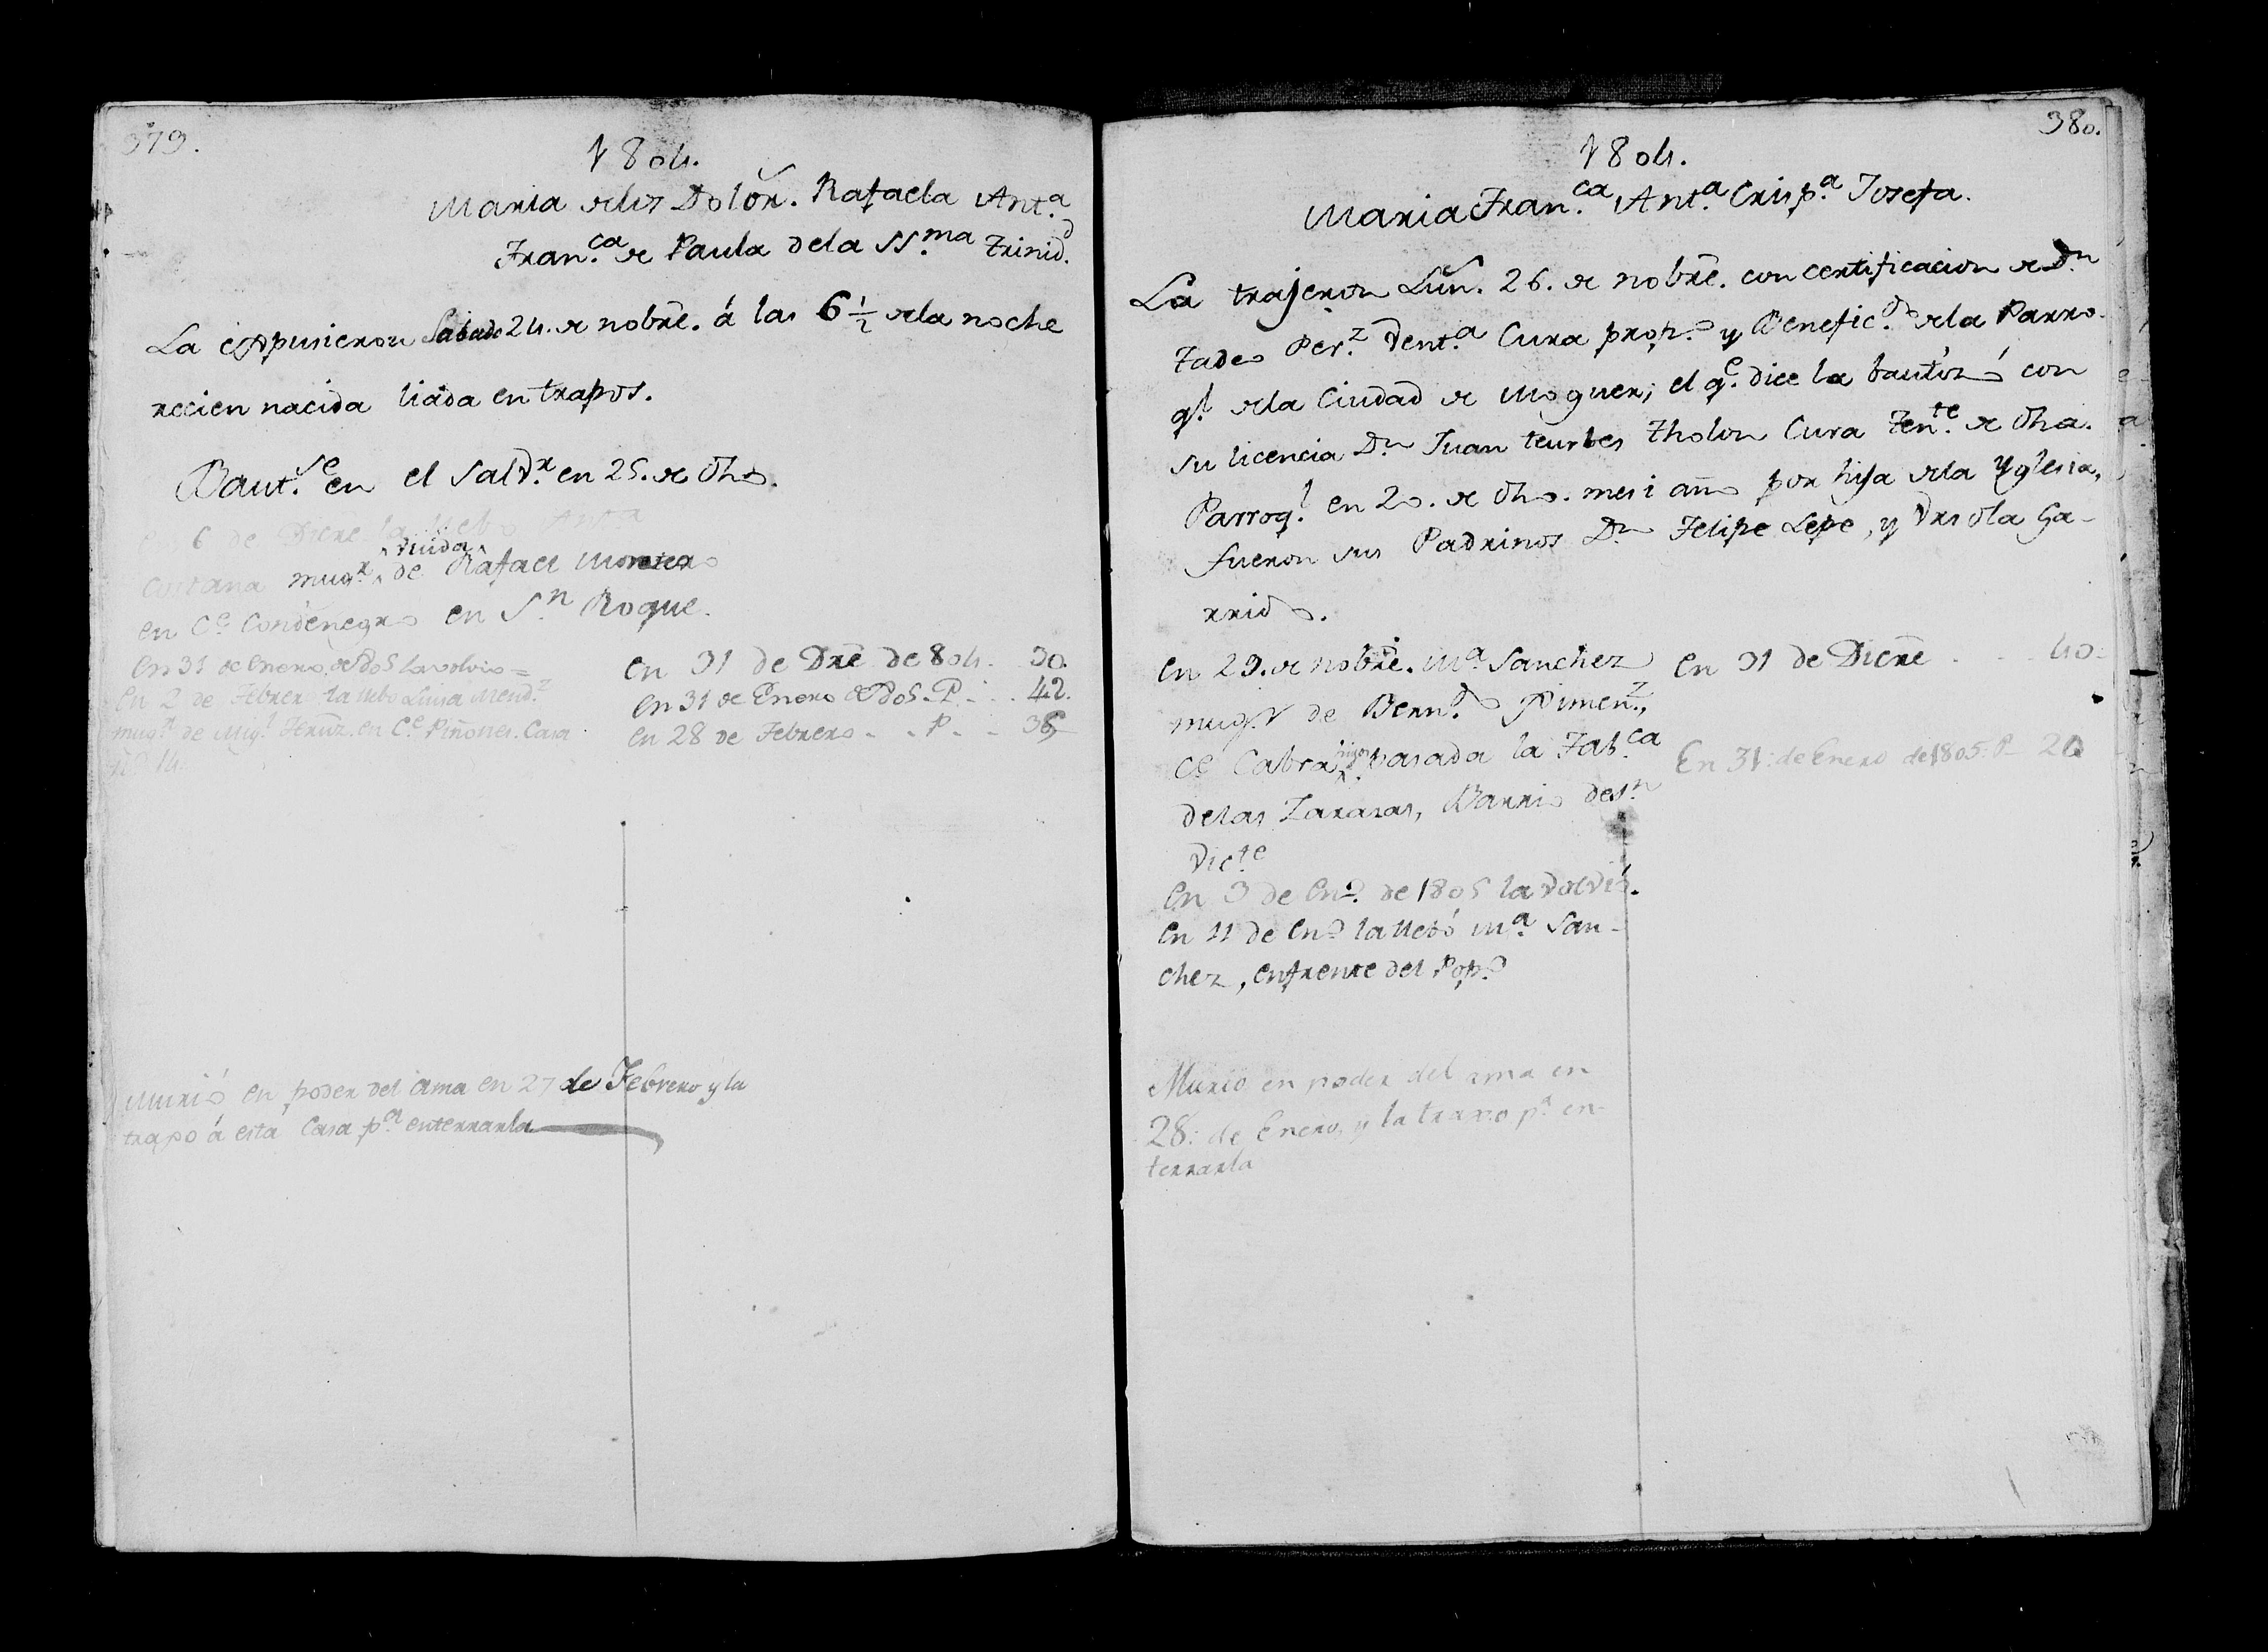 379.
1804.
Maria de los Dolor. Rafaela Ant.a
Fran.ca de Paula de la SS.ma Trinid.d
La expusieron Sabado 24. de nobre. á las 6 1/2 de la noche
recien nacida liada en trapos.
Baut.se en el Salv.r en 25. de dho.
6 de Dicre. la llebó Ant.a
mug.r viuda de Rafael Montero
en C.e Condenegro en S.n Roque.
En 31 de Enero de 805 la volvio =
En 2 de Febrero la llebo Luisa Mend.z
mug.r de Mig.l Hernz. en C.e Piñones. Casa
n.o 14.
en 31 de Dre de 804. 30.
En 31 de Enero de 805. P. . . 42.
en 28 de Febrero - . P. - - 36
Murió en poder del ama en 27 de Febrero y la
traxo á esta Casa p.a enterrarla
380.
1804.
Maria Fran.ca Ant.a Crisp.a Josefa.
La trajeron Lun. 26. de nobre. con certificacion de Dn
Tadeo Per.z Cura prop.o y Benefic.do de la Parro-
q.l de la Ciudad de Moguer; el q.e dice la bautizó con
su licencia Dn Juan Tholon Cura Ten.te de dha.
Parroq.l en 20. de dho. mes i año por hija de la Yglesia,
fueron sus Padrinos Dn Felipe Lepe, y Ursola Ga-
rrido.
en 29. de nobre. M.a Sanchez
mug.r de Bern.do Ximen.z,
C.e Cabrahigo pasada la Fab.ca
de las Zarasas, Barrio de S.n
Vic.te
En 3 de En.o de 1805 la volvió.
En 11 de En.o la llebó M.a San-
chez, enfrente del Pop.o
En 31 de Dicre . - - 40.
En 31: de Enero de 1805: P- 20
Murió en poder del ama en
28: de Enero, y la traxo p.a en-
terrarla